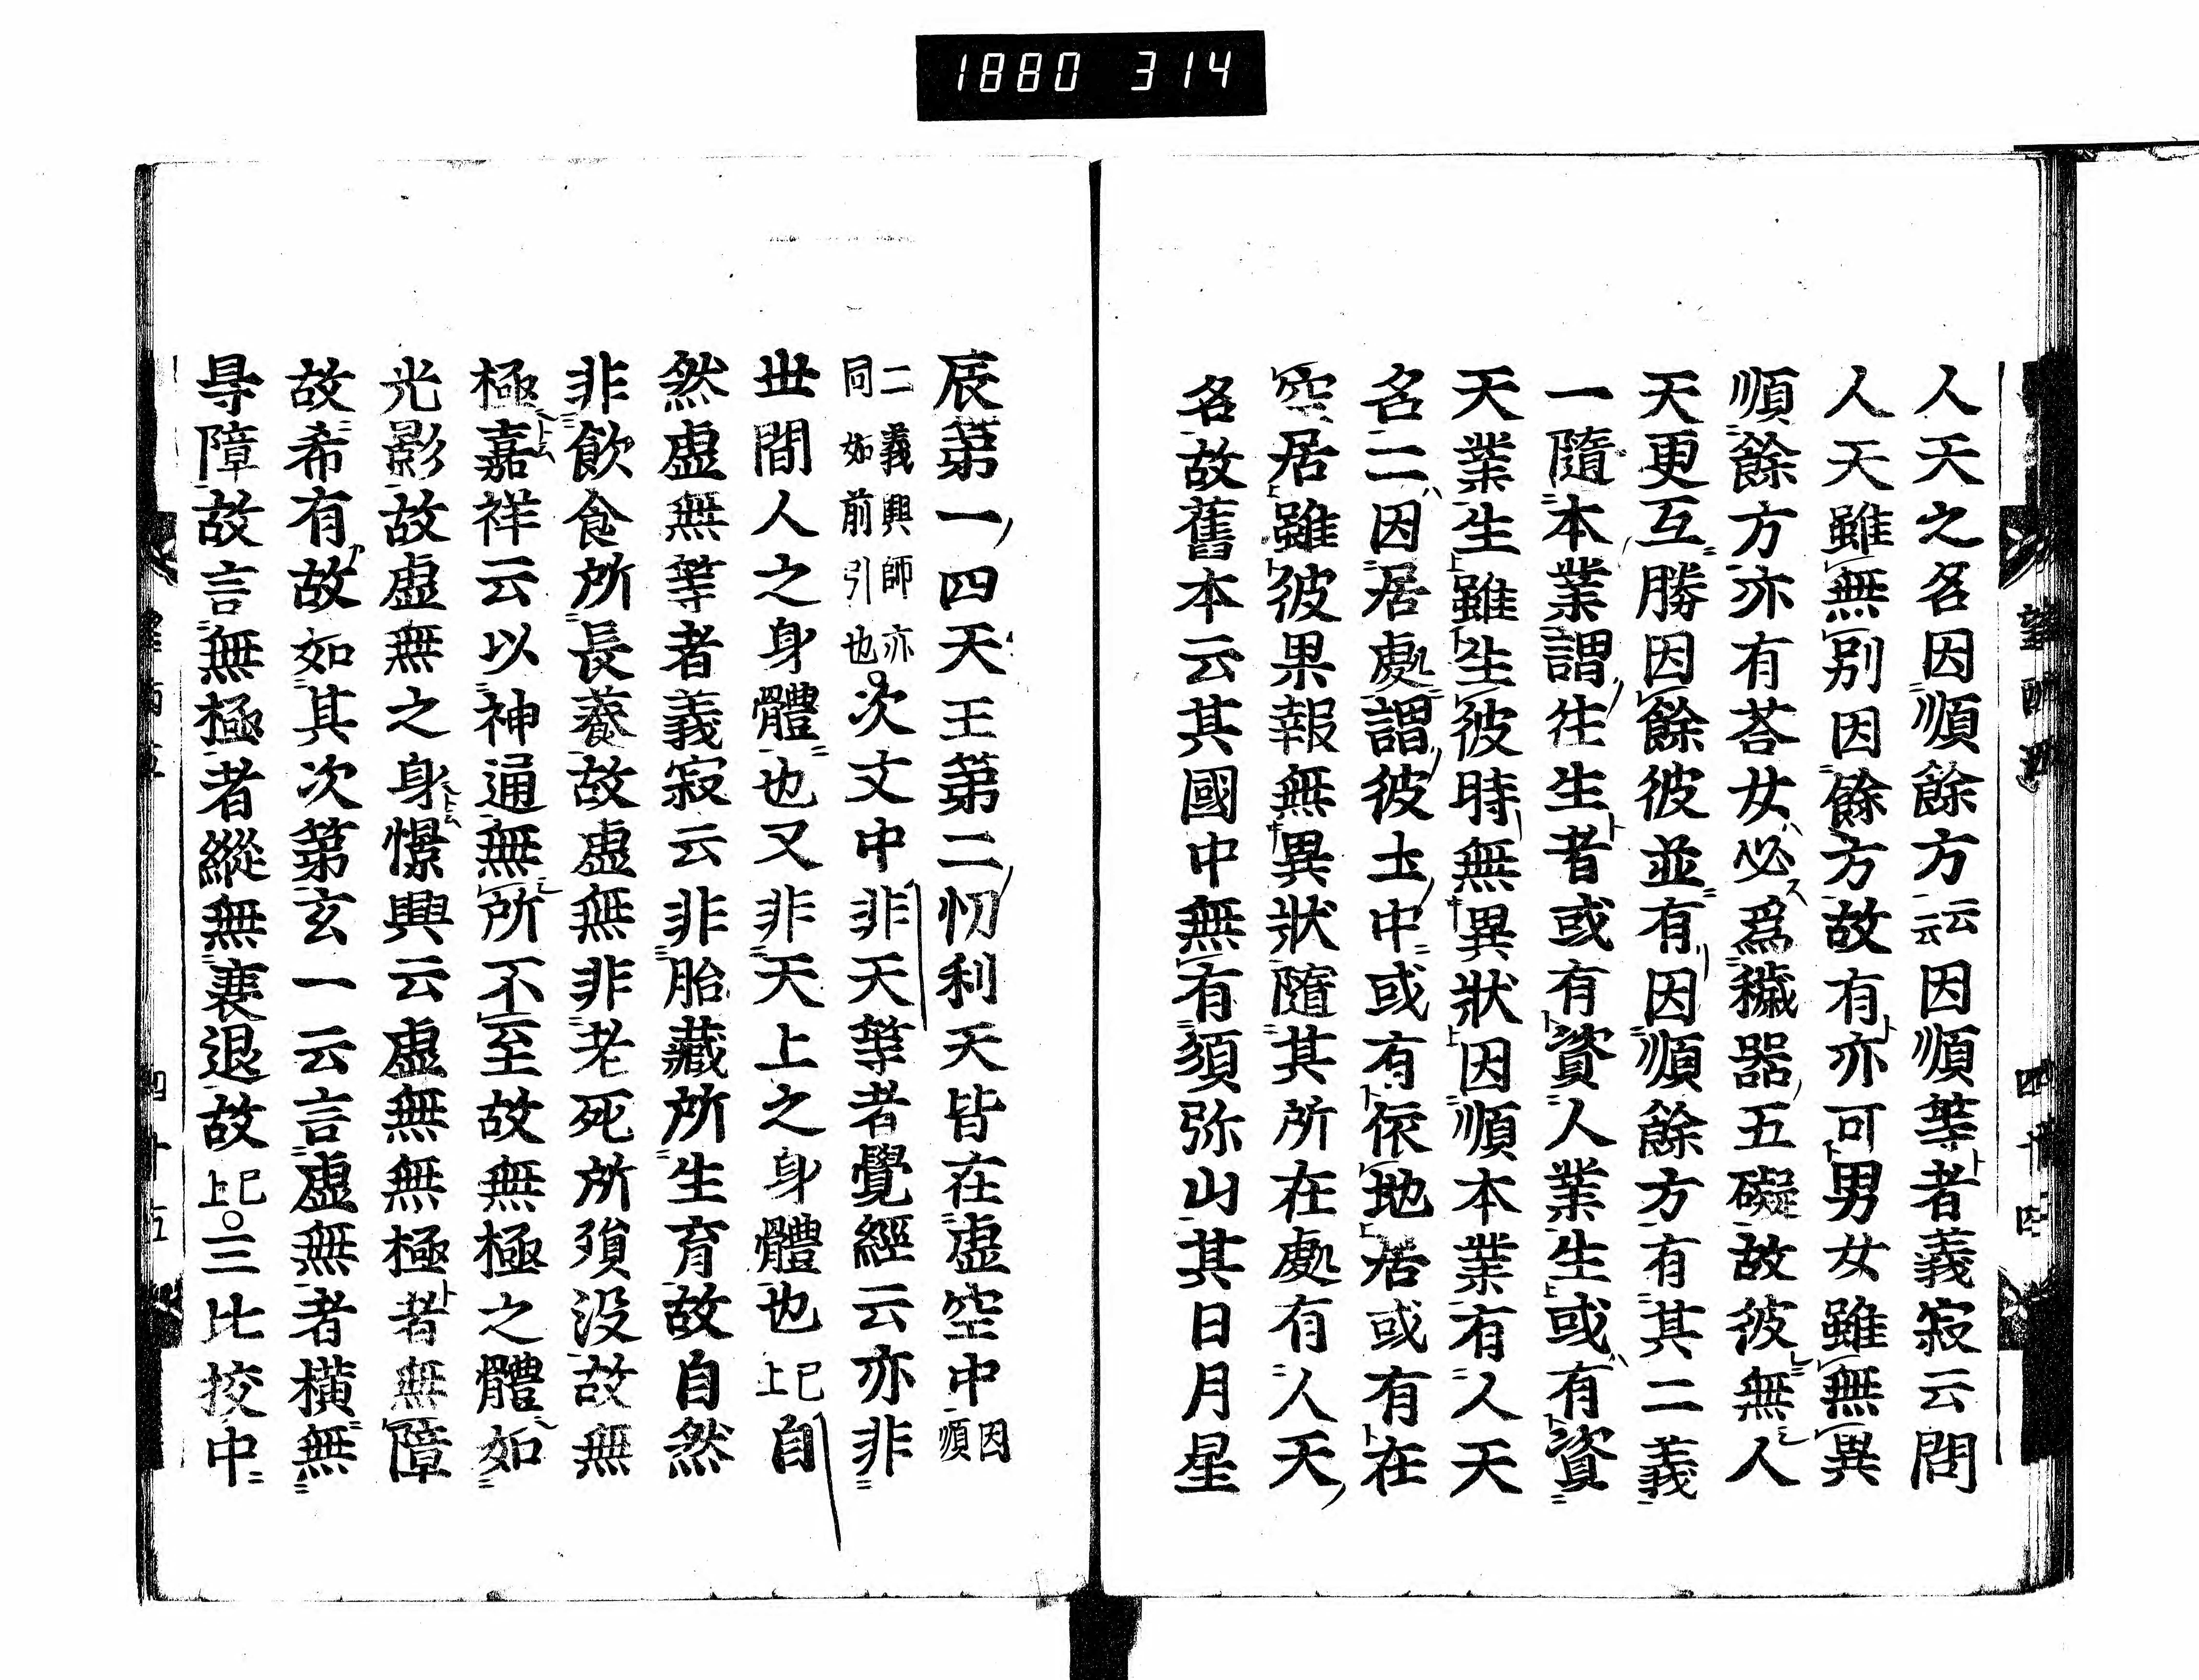 1880 314
人天之名因順餘方云云因順等者義寂云問
人天雖無別因餘方故有亦可男女雖無異
順餘方亦有荅女必爲穢器五礙故彼無人
天更互勝因餘彼並有因順餘方有其二義
一隨本業謂徃生者或有資人業生或有資
天業生雖生彼時無異狀因順本業有人天
名二因居處謂彼土中或有依地居或有在
空居雖彼果報無異狀隨其所在處有人天
名故舊本云其國中無有須弥山其日月星
四十四
辰第一四天王第二忉利天皆在虚空中因順
二義興師亦同如前引也次文中非天等者覺經云亦非
世間人之身體也又非天上之身體也已上自
然虚無等者義寂云非胎藏所生育故自然
非飲食所長養故虚無非老死所殞没故無
極嘉祥云以神通無所不至故無極之體如
光影故虚無之身憬興云虚無無極者無障
故希有故如其次第玄一云言虚無者横無
㝵障故言無極者縱無衰退故已上三比挍中
四十五